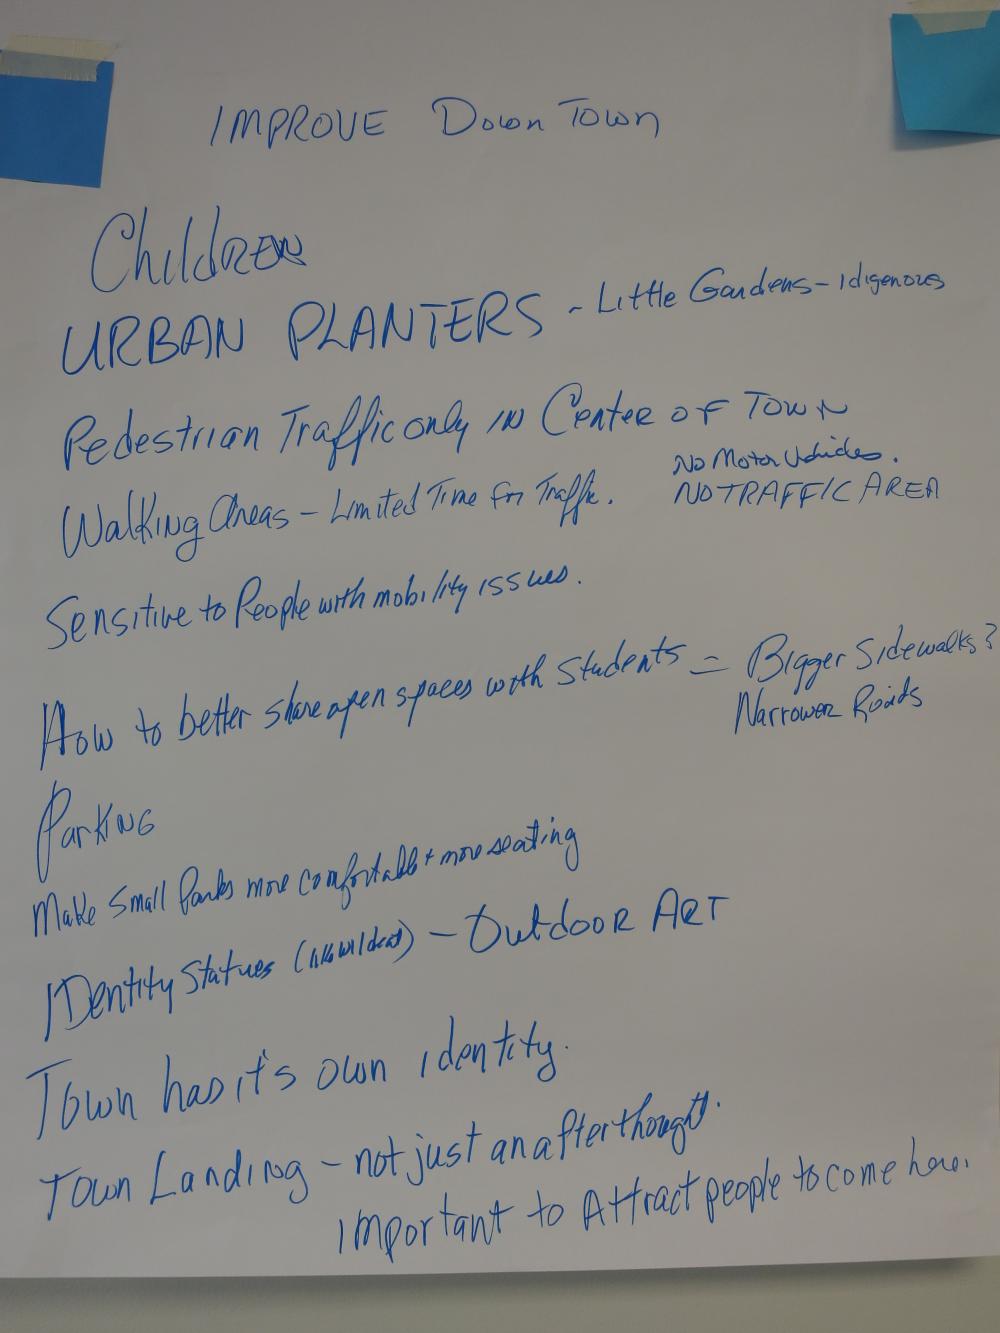 IMPROVE Down Town
Children
URBAN PLANTERS - Little Gardens - Idigenous
Pedestrian Traffic only in Center of Town
No Motor Vehicles.
Walking Areas - Limited Time for Traffic. NO TRAFFIC AREA
Sensitive to People with mobility issues.
How to better share open spaces with Students = Bigger Sidewalks?
Narrower Roads
Parking
Make Small Parks more comfortable + more seating
IDentity Statues (like wildcat) - Outdoor ART
Town has it's own identity.
Town Landing - not just an afterthought.
important to Attract people to come here.